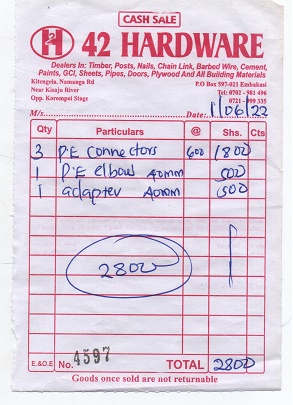 CASH SALE
42 HARDWARE
Dealers In: Timber, Posts, Nails, Chain Link, Barbed Wire, Cement,
Paints, GCI, Sheets, Pipes, Doors, Plywood And All Building Materials
Kitengela, Namanga Rd
Near Kisaju River
Opp. Korompoi Stage
P.O Box 597-021 Embakasi
Tel: 0702 - 981 496
0721 - 999 335
M/s Date: 1/06/22
Qty Particulars @ Shs. Cts
3 P.E connectors 600 1800
1 P.E elbow 40mm 500
1 adapter 40mm 500
2800
E.&O.E No. 4597 TOTAL 2800
Goods once sold are not returnable